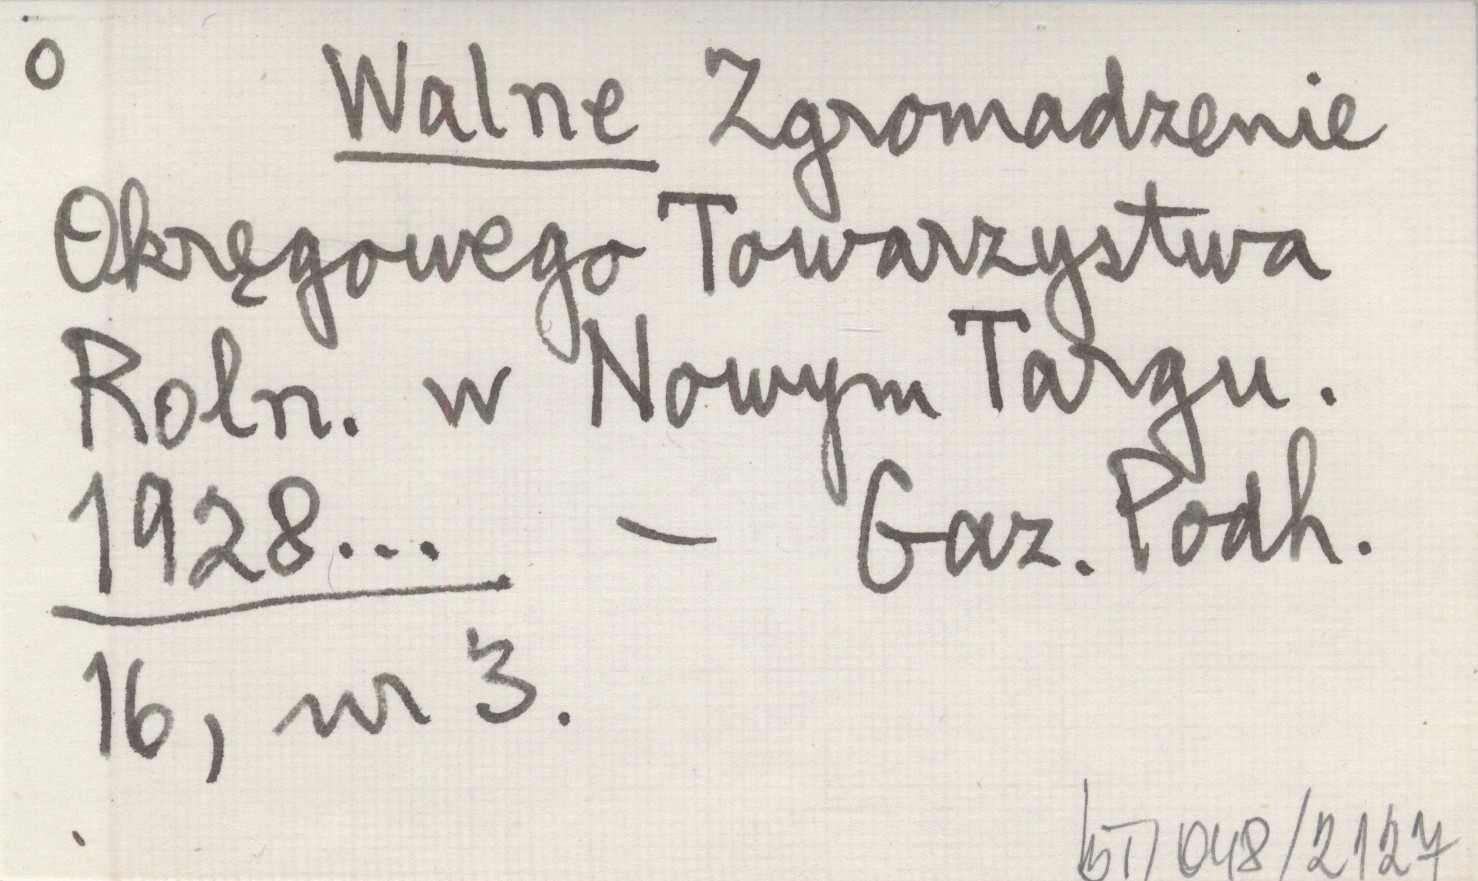 o Walne Zgromadzenie
Okręgowego Towarzystwa
Roln. w Nowym Targu.
1928... – Gaz. Podh.
16, nr 3.
048/2127